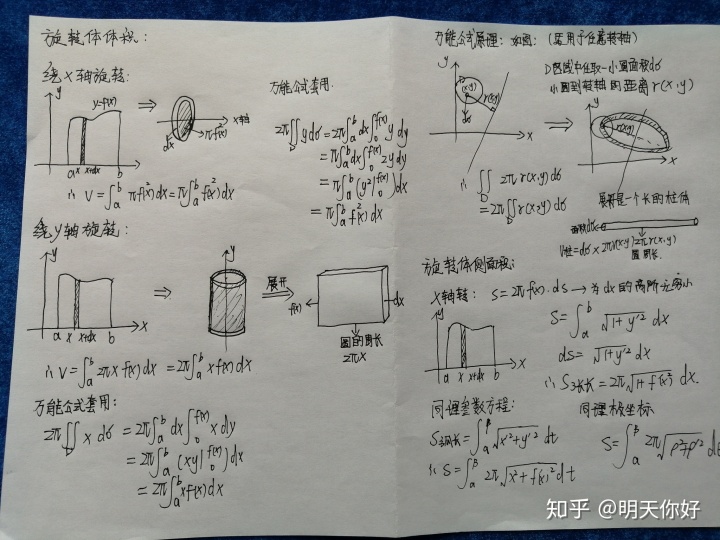 旋转体体积:
绕X轴旋转:
y
y=f(x)
⇒
a x x+dx b x
dx
πf²(x)
x轴
∴ V=∫_a^b πf²(x)dx=π∫_a^b f²(x)dx
万能公式套用.
2π∬_D ydσ=2π∫_a^b dx∫_0^{f(x)} y dy
=π∫_a^b dx∫_0^{f(x)} 2y dy
=π∫_a^b (y²|_0^{f(x)})dx
=π∫_a^b f²(x)dx
绕y轴旋转:
y
a x x+dx b x
⇒
y
展开
⇒
f(x)
dx
圆的周长
2πx
∴ V=∫_a^b 2πx f(x)dx =2π∫_a^b xf(x)dx
万能公式套用:
2π∬_D x dσ =2π∫_a^b dx∫_0^{f(x)} x dy
=2π∫_a^b (xy|_0^{f(x)})dx
=2π∫_a^b xf(x)dx
万能公式原理: 如图: (适用于任意转轴)
D区域中任取一小圆面积dσ
小圆到转轴的距离r(x,y)
y
D
(x,y)
r(x,y)
dσ
x
⇒
y
r(x,y)
x
∴ ∬_D 2πr(x,y)dσ
=2π∬_D r(x,y)dσ
展开是一个长的柱体
面积dσ
2πr(x,y)
圆周长.
V柱=dσ×2πr(x,y)
旋转体侧面积:
X轴转: S=2πf(x)·ds→为dx的高阶无穷小
y
a x x+dx b x
S=∫_a^b √(1+y'²) dx
ds=√(1+y'²) dx
=2π√(1+f'(x)²) dx.
同理参数方程:
S弧长=∫_α^β √(x'²+y'²) dt
∴ S=∫_α^β 2π√(x²+f(x)²) dt
同理极坐标
S=∫_α^β 2π√(ρ²+ρ'²) dθ
知乎 @明天你好